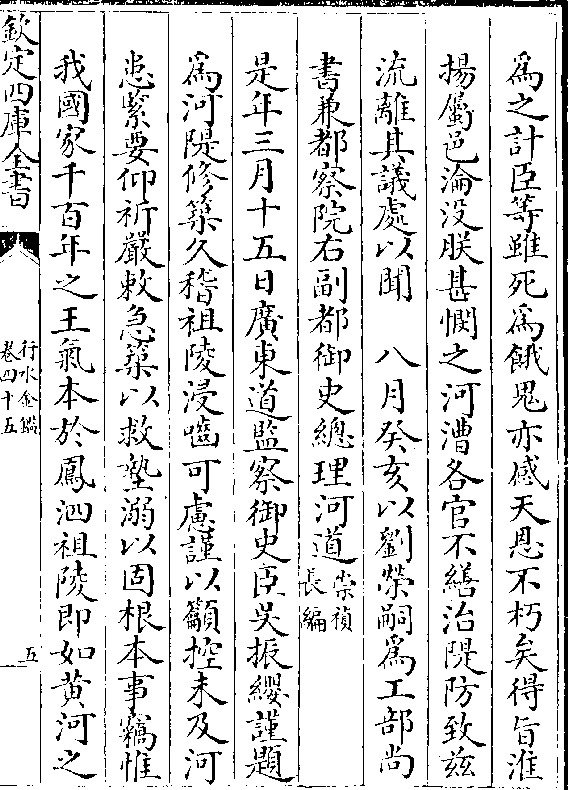 為之計臣等雖死為餓鬼亦感天恩不朽矣得旨淮
揚屬邑淪没朕甚憫之河漕各官不繕治隄防致兹
流離其議處以聞　八月癸亥以劉榮嗣為工部尚
書兼都察院右副都御史總理河道崇禎長編
是年三月十五日廣東道監察御史臣吳振纓謹題
為河隄修築久稽祖陵浸嚙可慮謹以籲控未及河
患緊要仰祈嚴敕急築以救墊溺以固根本事竊惟
我國家千百年之王氣本於鳳泗祖陵即如黄河之
欽定四庫全書
行水金鑑
卷四十五
五